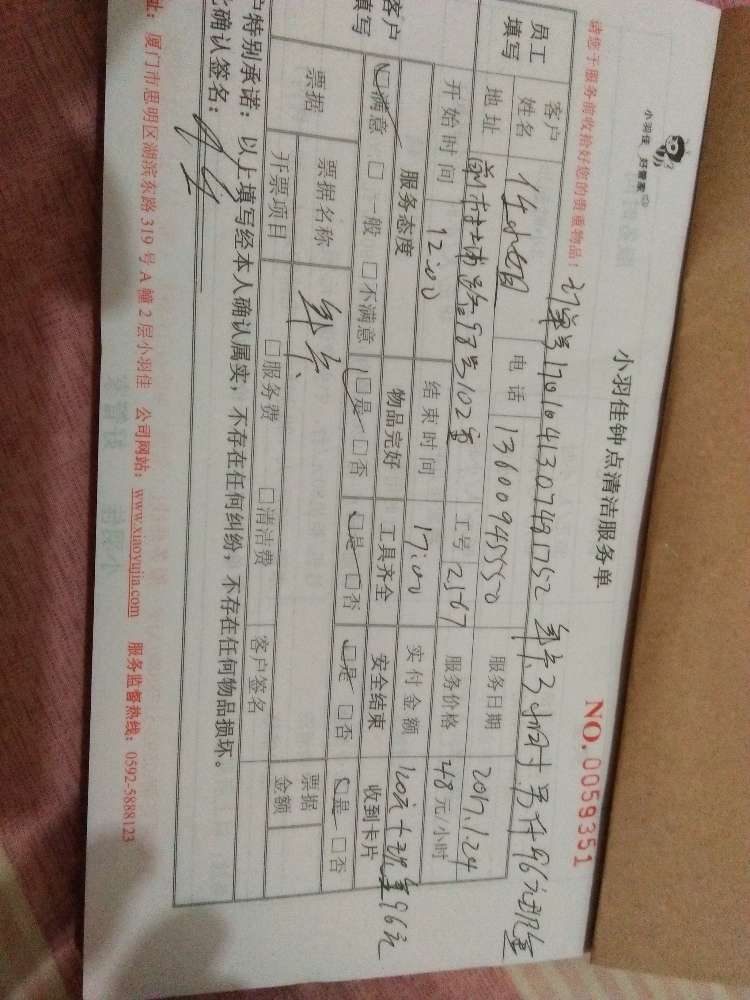 小羽佳 好管家
小羽佳钟点清洁服务单
NO. 0059351
请您于服务前收拾好您的贵重物品!
订单号1701041307481752 3小时 另付96元现金
员工填写
客户姓名
电话 13600945550
服务日期 2017.1.24
地址 98号102室
工号 2567
服务价格 48元/小时
开始时间 12:00
结束时间 17:00
实付金额 120元+现金96元
客户填写
服务态度 物品完好 工具齐全 安全结束 收到卡片
☑满意 □一般 □不满意 ☑是 □否 ☑是 □否 ☑是 □否 ☑是 □否
票据
票据名称
票据金额
开票项目 □服务费 □清洁费 客户签名
户特别承诺:以上填写经本人确认属实,不存在任何纠纷,不存在任何物品损坏。
此确认签名:
址:厦门市思明区湖滨东路319号A幢2层小羽佳 公司网站:www.xiaoyujia.com 服务监督热线:0592-5888123